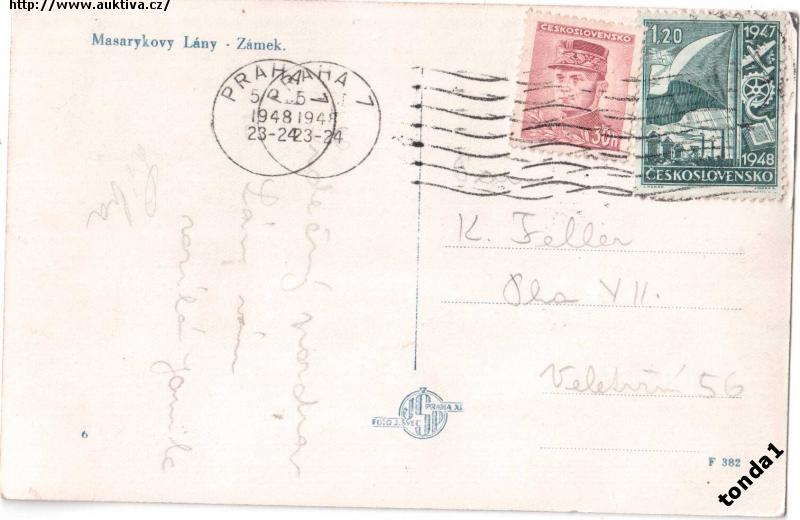 http://www.auktiva.cz/
Masarykovy Lány - Zámek.
PRAHA 7
1948
23-24
PRAHA 7
1948
23-24
ČESKOSLOVENSKO
30h
1,20
1947
1948
ČESKOSLOVENSKO
K. Feller
Pha VII.
Veletržní 56
srdečný pozdrav
Lán vám
posílá Jarmila
FOTO J. ŠVEC
PRAHA XI.
6
F 382
tonda1